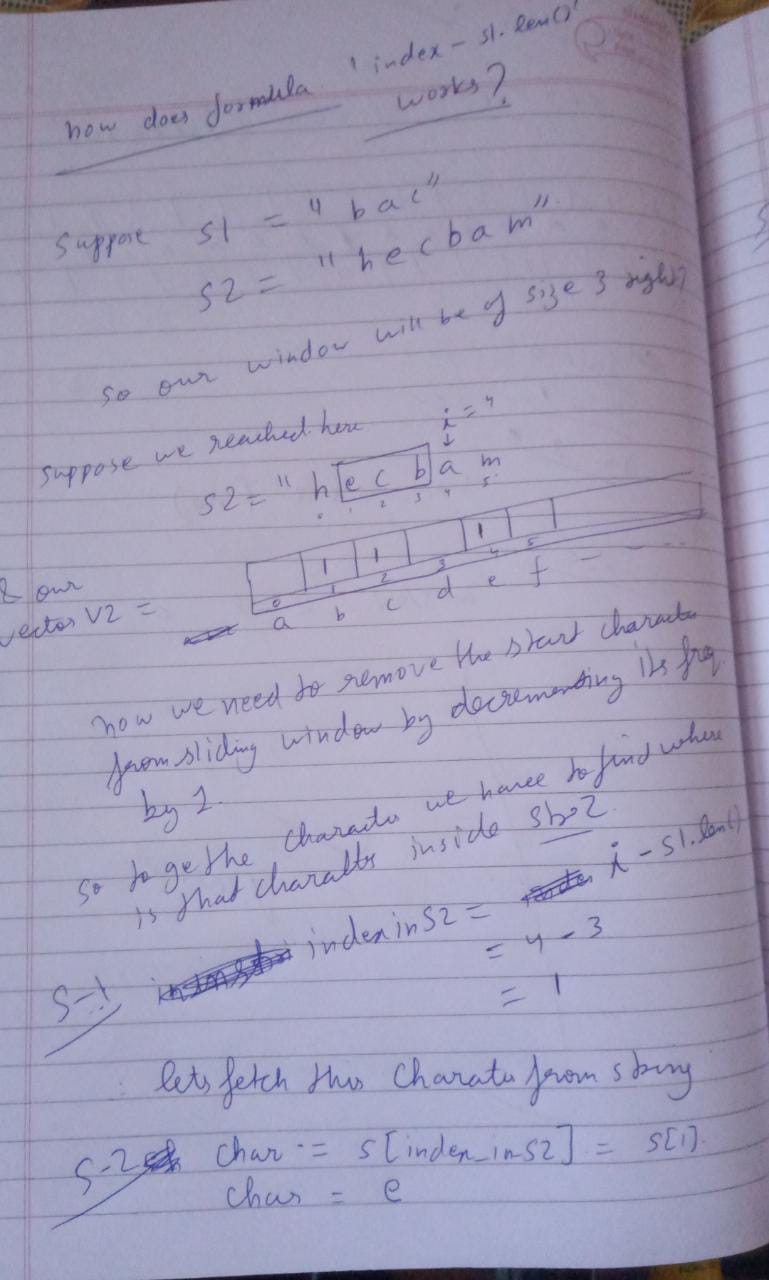 how does formula 'index - s1.len()'
works?
Suppose s1 = "bac"
s2 = "hecbam"
so our window will be of size 3 right?
suppose we reached here i = 4
s2 = "h e c b a m
0 1 2 3 4 5
& our
vector v2 =
1 1 1
0 1 2 3 4 5
a b c d e f - - - -
now we need to remove the start character
from sliding window by decrementing its freq
by 1.
so to ge the character we have to find where
is that character inside str2
S-1 index in S2 = i - s1.len()
= 4 - 3
= 1
lets fetch this Charater from string
S-2 char = s[index_in_S2] = s[1].
char = e